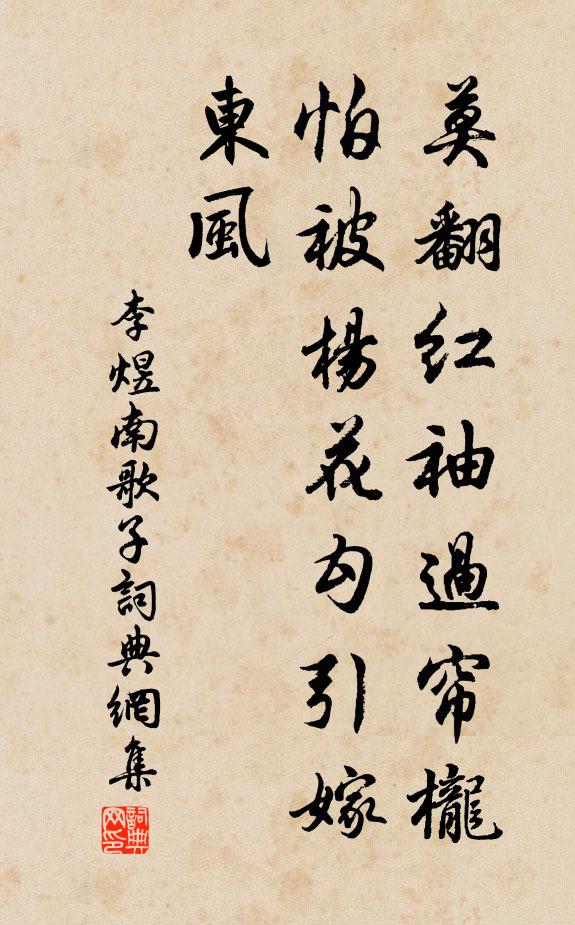 莫翻红袖過帘櫳
怕被楊花勾引嫁
東風
李煜南歌子詞典網集
詞典
网印